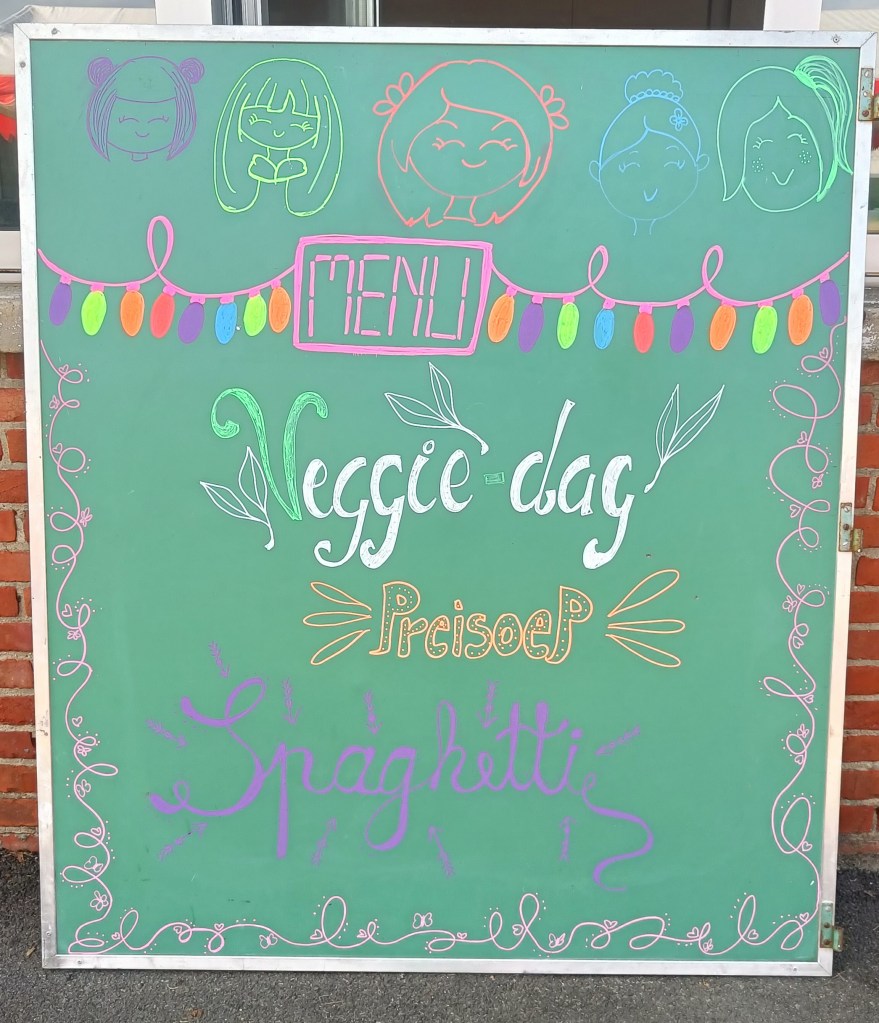 MENU
Veggie-dag
Preisoep
Spaghetti